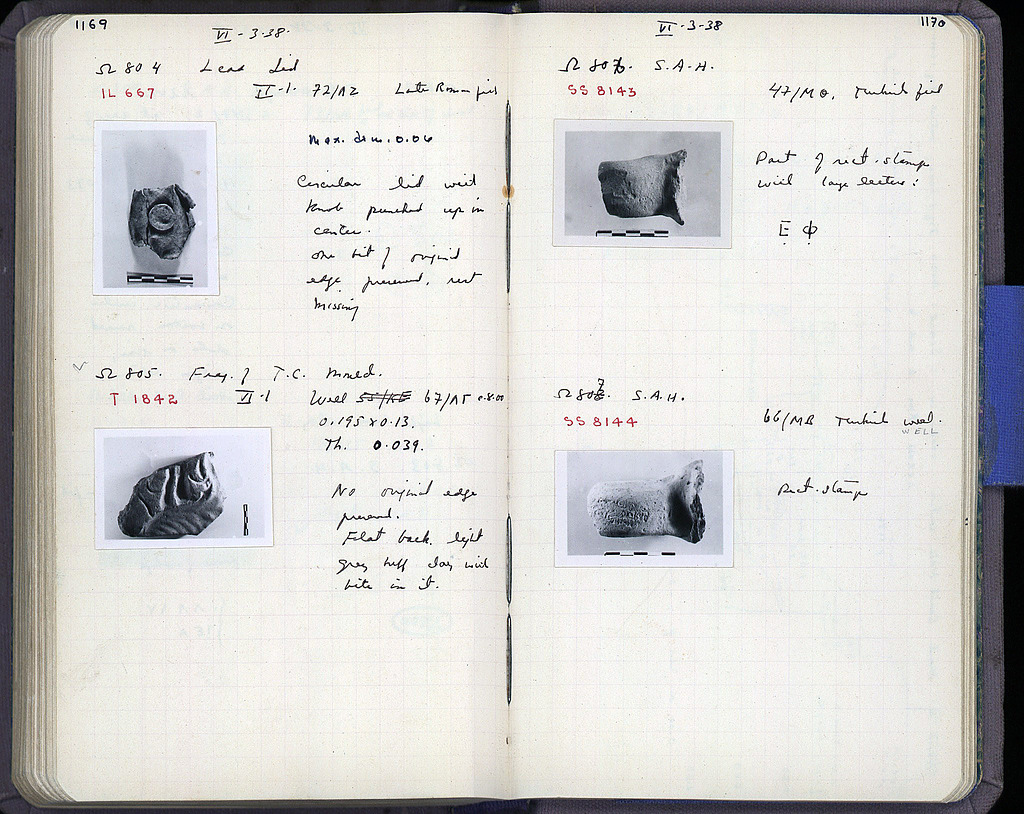 1169
VI - 3-38.
Ω 804 Lead Lid
IL 667 II-1. 72/ΛΖ Late Roman fill
Max. dim. 0.06
Circular lid with
knob punched up in
center.
One bit of original
edge preserved, rest
missing
Ω 805. Frag. of T.C. Mould.
T 1842 VI-1 Well 67/ΛΓ
0.195 x 0.13.
Th. 0.039.
No original edge
preserved.
Flat back. light
grey buff clay with
bits in it.
1170
VI - 3-38
Ω 806. S.A.H.
SS 8143 47/ΜΘ. Turkish fill
Part of rect. stamp
with large letters:
Ε Φ
Ω 807. S.A.H.
SS 8144 66/ΜΒ Turkish well.
WELL
Rect. stamp